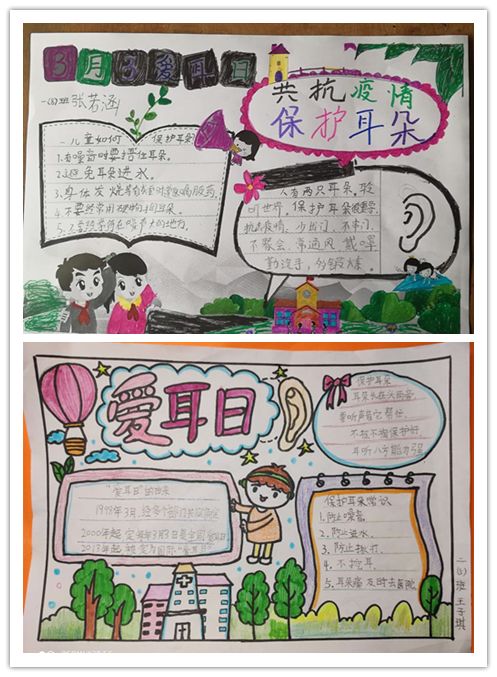 3月3爱耳日
一(5)班 张若涵
共抗疫情
保护耳朵
儿童如何 保护耳朵
1.有噪音时要捂住耳朵。
2.避免耳朵进水。
3.身体发烧
4.不要经常用硬的
人有两只耳朵,
保护耳朵
抗击疫情,少出门,不串门,
不聚会,常通风,戴口罩,
勤洗手,多锻炼。
爱耳日
"爱耳日"的由来
1998年3月,经多个部门共同商定
2000年起 定每年3月3日是全国爱耳日
2013年起 被定为国际"爱耳日"
保护耳朵
耳朵长在头两旁
要听声音它帮忙
不挖不掏保护好
耳听八方能力强
保护耳朵常识
1.防止噪音
2.防止进水.
3.防止
4.不挖耳
5.耳朵痛及时去医院
二(5)班 王子琪